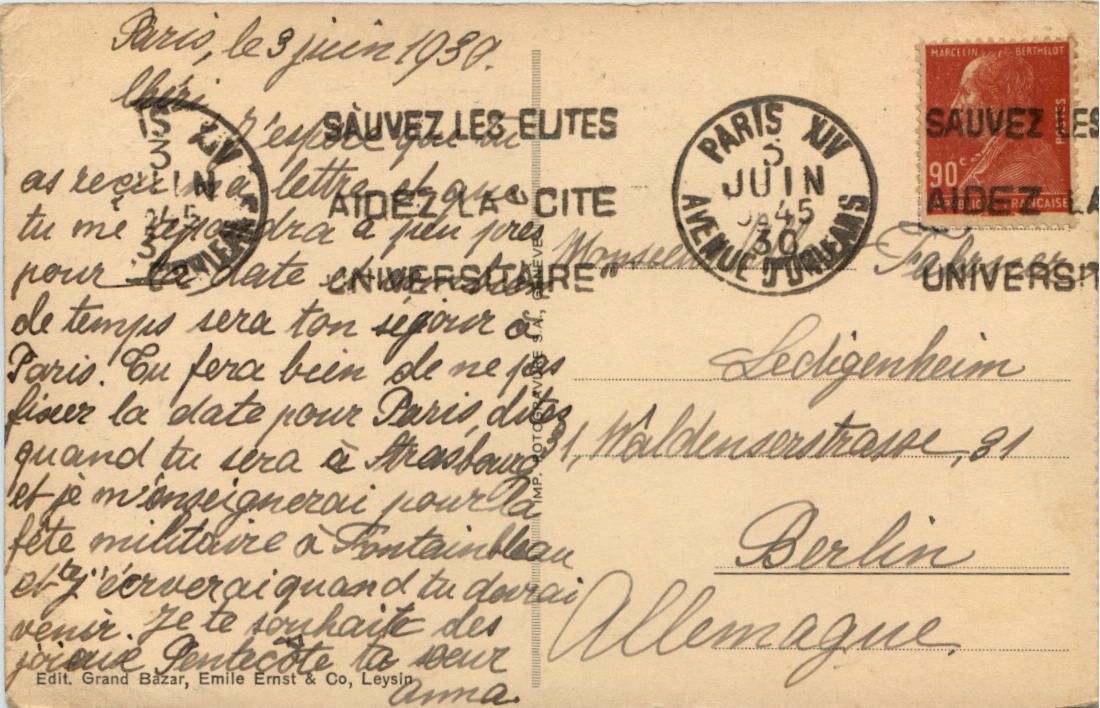 Paris, le 3 juin 1930.
Chéri
J'espère que tu
as reçu ma lettre et que
tu me répondra à peu près
pour la date et combien
de temps sera ton séjour à
Paris. Tu fera bien de ne pas
fixer la date pour Paris, dites
quand tu sera à Strasbourg
et je m'enseignerai pour la
fête militaire à Fontainbleau
et t'j'écrverai quand tu devrai
venir. Je te souhaite des
joieuse Pentecôte ta sœur
Anna.
Edit. Grand Bazar, Emile Ernst & Co, Leysin
IMP. ROTOGRAVURE S.A., GENÈVE
SAUVEZ LES ELITES
AIDEZ LA CITE
UNIVERSITAIRE
PARIS XIV
3
JUIN
45
30
AVENUE D'ORLEANS
IS XIV
3
UIN
45
3
ORLEANS
MARCELIN BERTHELOT
POSTES
90c
REPUBLIQUE FRANCAISE
SAUVEZ LES
AIDEZ LA
UNIVERSIT
Monsieur
Ledigenheim
31, Waldenserstrasse, 31
Berlin
Allemagne.